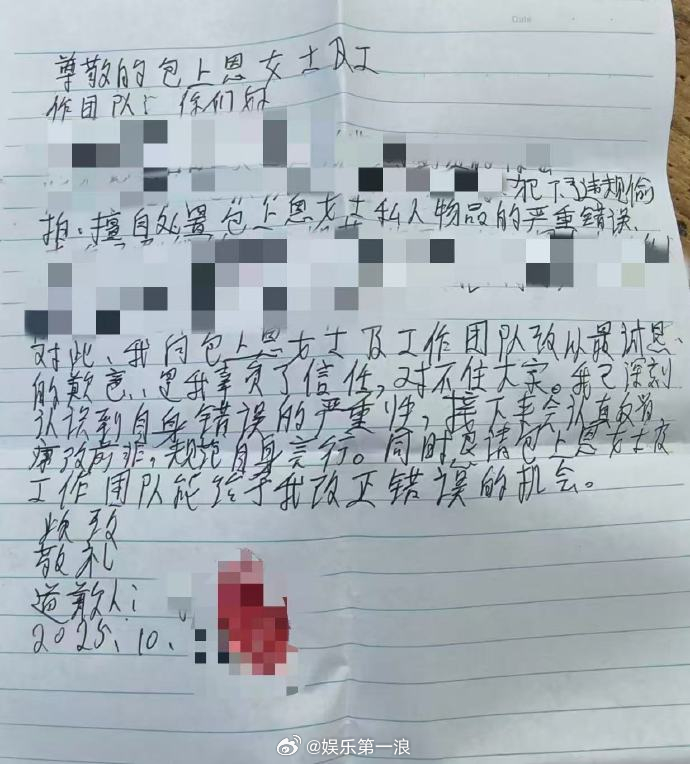 Date
尊敬的包上恩女士及工
作团队: 你们好
犯下了违规偷
拍、擅自处置包上恩女士私人物品的严重错误、
对此、我向包上恩女士及工作团队致以最诚恳
的歉意、是我辜负了信任,对不住大家。我已深刻
认识到自身错误的严重性,接下来会认真反省
痛改前非,规范自身言行。同时恳请包上恩女士及
工作团队能给予我改正错误的机会。
此致
敬礼
道歉人:
2025、10、
@娱乐第一浪